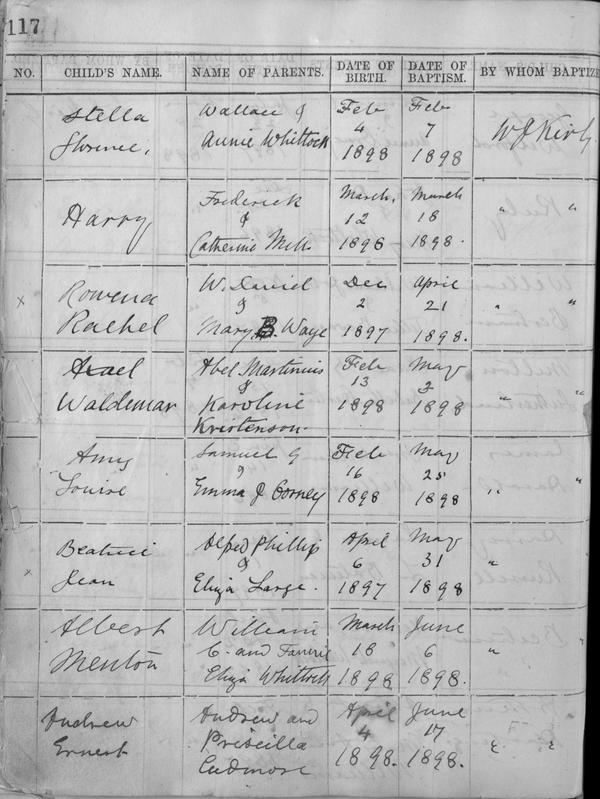 117
NO. CHILD'S NAME. NAME OF PARENTS. DATE OF BIRTH. DATE OF BAPTISM. BY WHOM BAPTIZE
Stella Wallace & Feb Feb
Florence, Annie Whittock 4 7 W J Kirby
1898 1898
Harry Frederick March, March
& 12 18 " "
Catherine Mills 1898 1898.
x Rowena W. David Dec April
& 2 21 " "
Rachel Mary B. Waye 1897 1898.
Axael Abel Martinius Feb May
& 13 2
Waldemar Karoline 1898 1898 " "
Kristenson.
Amy Samuel G Feb May
& 16 25
Louise Emma J Corney 1898 1898 " "
x Beatrice Alfred Phillip April May
& 6 31 "
Jean Eliza Large. 1897 1898
Albert William March June
Menton C. and Fannie 18 6 " "
Eliza Whittock 1898 1898.
Andrew Andrew and April June
Ernest Priscilla 4 17 " "
Cudmore 1898. 1898.